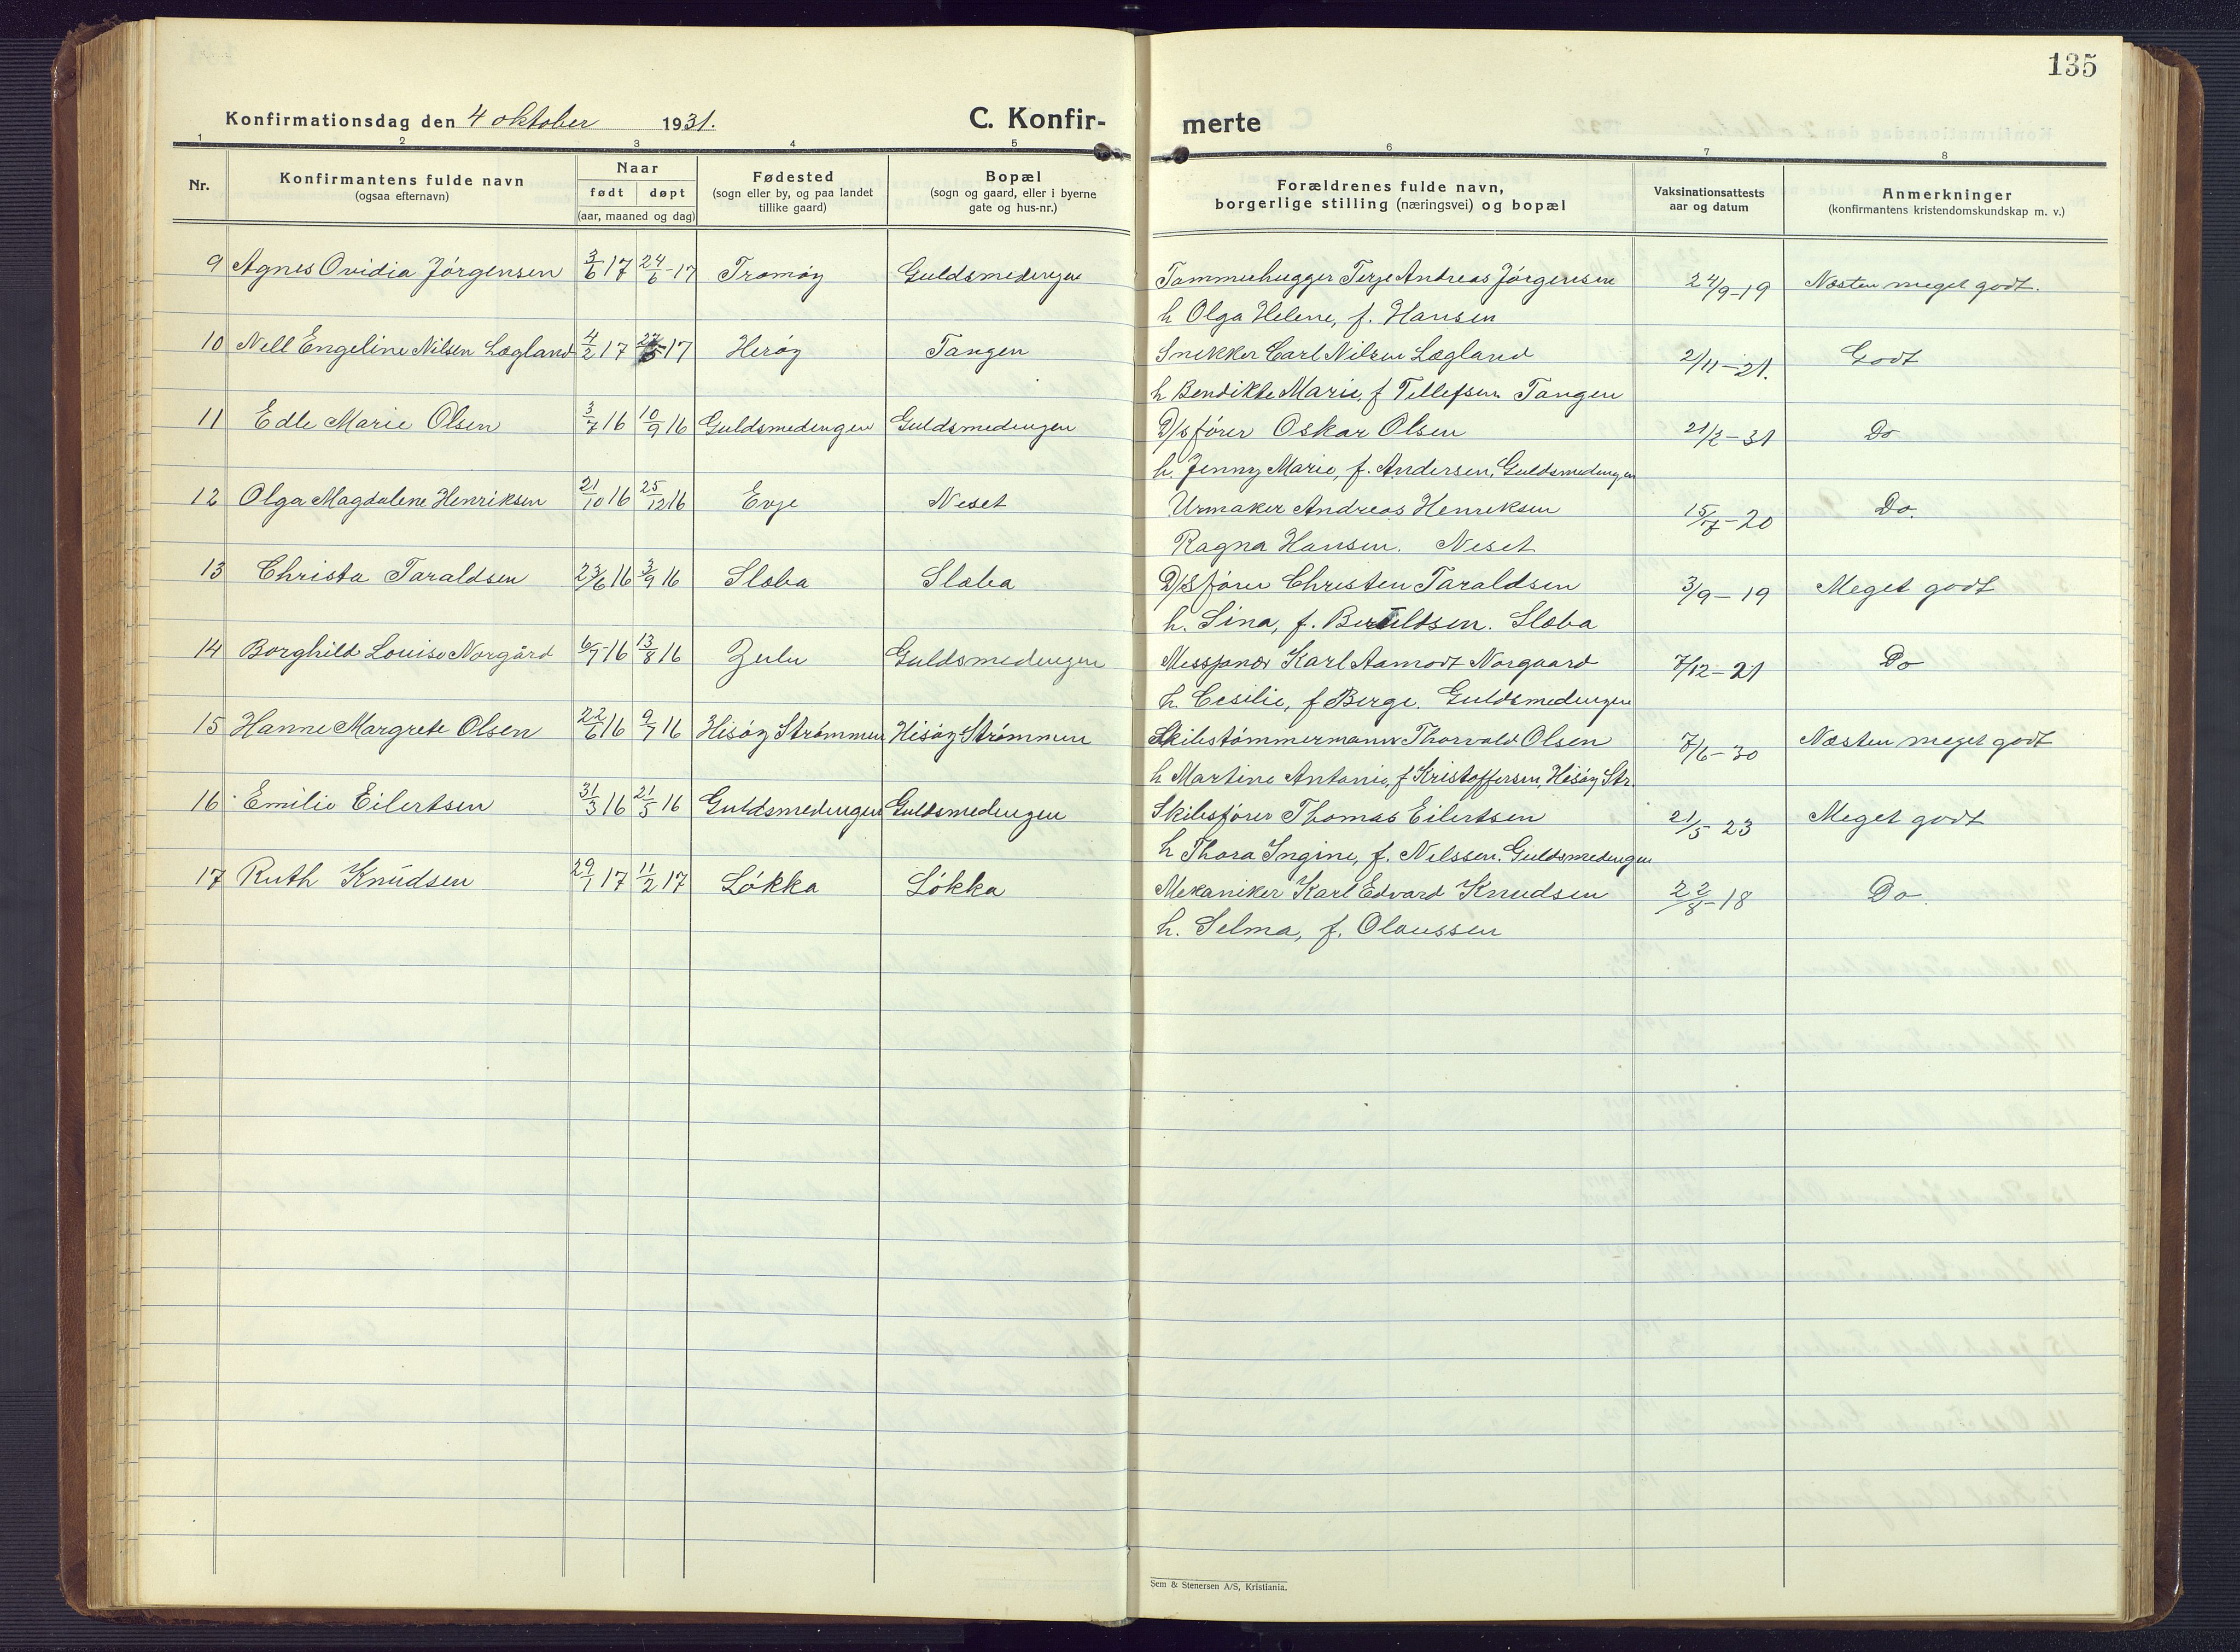 135
Konfirmationsdag den 4 oktober 1931.
C. Konfir-
merte
1 2 3 4 5 6 7 8
Nr.
Konfirmantens fulde navn
(ogsaa efternavn)
Naar
født døpt
(aar, maaned og dag)
Fødested
(sogn eller by, og paa landet
tillike gaard)
Bopæl
(sogn og gaard, eller i byerne
gate og hus-nr.)
Forældrenes fulde navn,
borgerlige stilling (næringsvei) og bopæl
Vaksinationsattests
aar og datum
Anmerkninger
(konfirmantens kristendomskundskap m. v.)
9 Agnes Ovidia Jörgensen 3/6 17 24/6-17 Tromöy Guldsmedengen Tømmerhugger Terje Andreas Jörgensen 24/9-19 Næsten meget godt.
h Olga Helene, f. Hansen
10 Nell Engeline Nilsen Lægland 4/2 17 17 Heröy Tangen Snekker Carl Nilsen Lægland 2/11-21. Godt
h Bendikte Marie, f Tellefsen Tangen
11 Edle Marie Olsen 3/7 16 10/9 16 Guldsmedengen Guldsmedengen D/s förer Oskar Olsen 21/2-31 Do
h. Jenny Marie, f. Andersen, Guldsmedengen
12 Olga Magdalene Henriksen 21/10 16 25/12 16 Evje Neset Urmaker Andreas Henriksen 15/7-20 Do.
Ragna Hansen. Neset
13 Christa Taraldsen 23/6 16 3/9 16 Slæba Slæba D/S förer Christen Taraldsen 3/9-19 Meget godt
h. Sina, f. Slæba
14 Borghild Louise Norgård 6/7 16 13/8 16 Zulu Guldsmedengen Missjonær Karl Aamodt Norgaard 7/12-21 Do
h. Cesilie, f Berge. Guldsmedengen
15 Hanne Margrete Olsen 22/6 16 9/7 16 Hisöy Strömmen Hisöy Strömmen Skibstömmermann Thorvald Olsen 7/6-30 Næsten meget godt
h Martine Antonie, f Kristoffersen, Hisöy Str.
16 Emilie Eilertsen 31/3 16 21/5 16 Guldsmedengen Guldsmedengen Skibsförer Thomas Eilertsen 21/5 23 Meget godt
h Thora Ingine, f. Nilssen. Guldsmedengen
17 Ruth Knudsen 29/1 17 11/2 17 Lökka Lökka Mekaniker Karl Edvard Knudsen 22/8-18 Do.
h. Selma, f. Olaussen
Sem & Stenersen A/S, Kristiania.